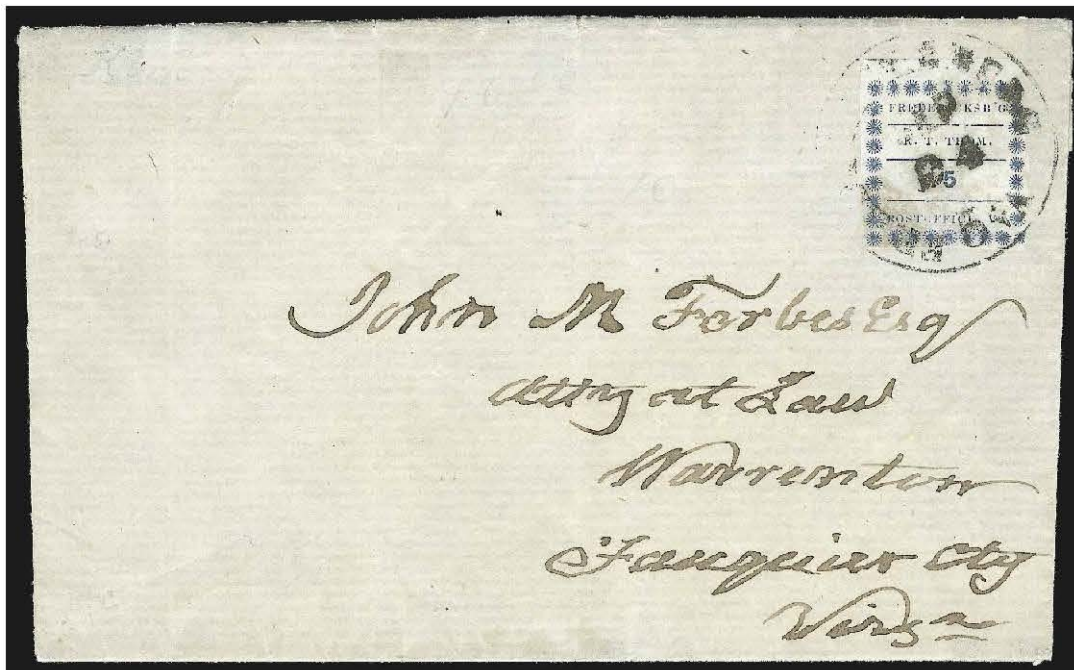 FREDERICKSB'G
R. T. THOM.
5
POST-OFFICE
John M Forbes Esq
Atty at Law
Warrenton
Fauquier Cty
Virga